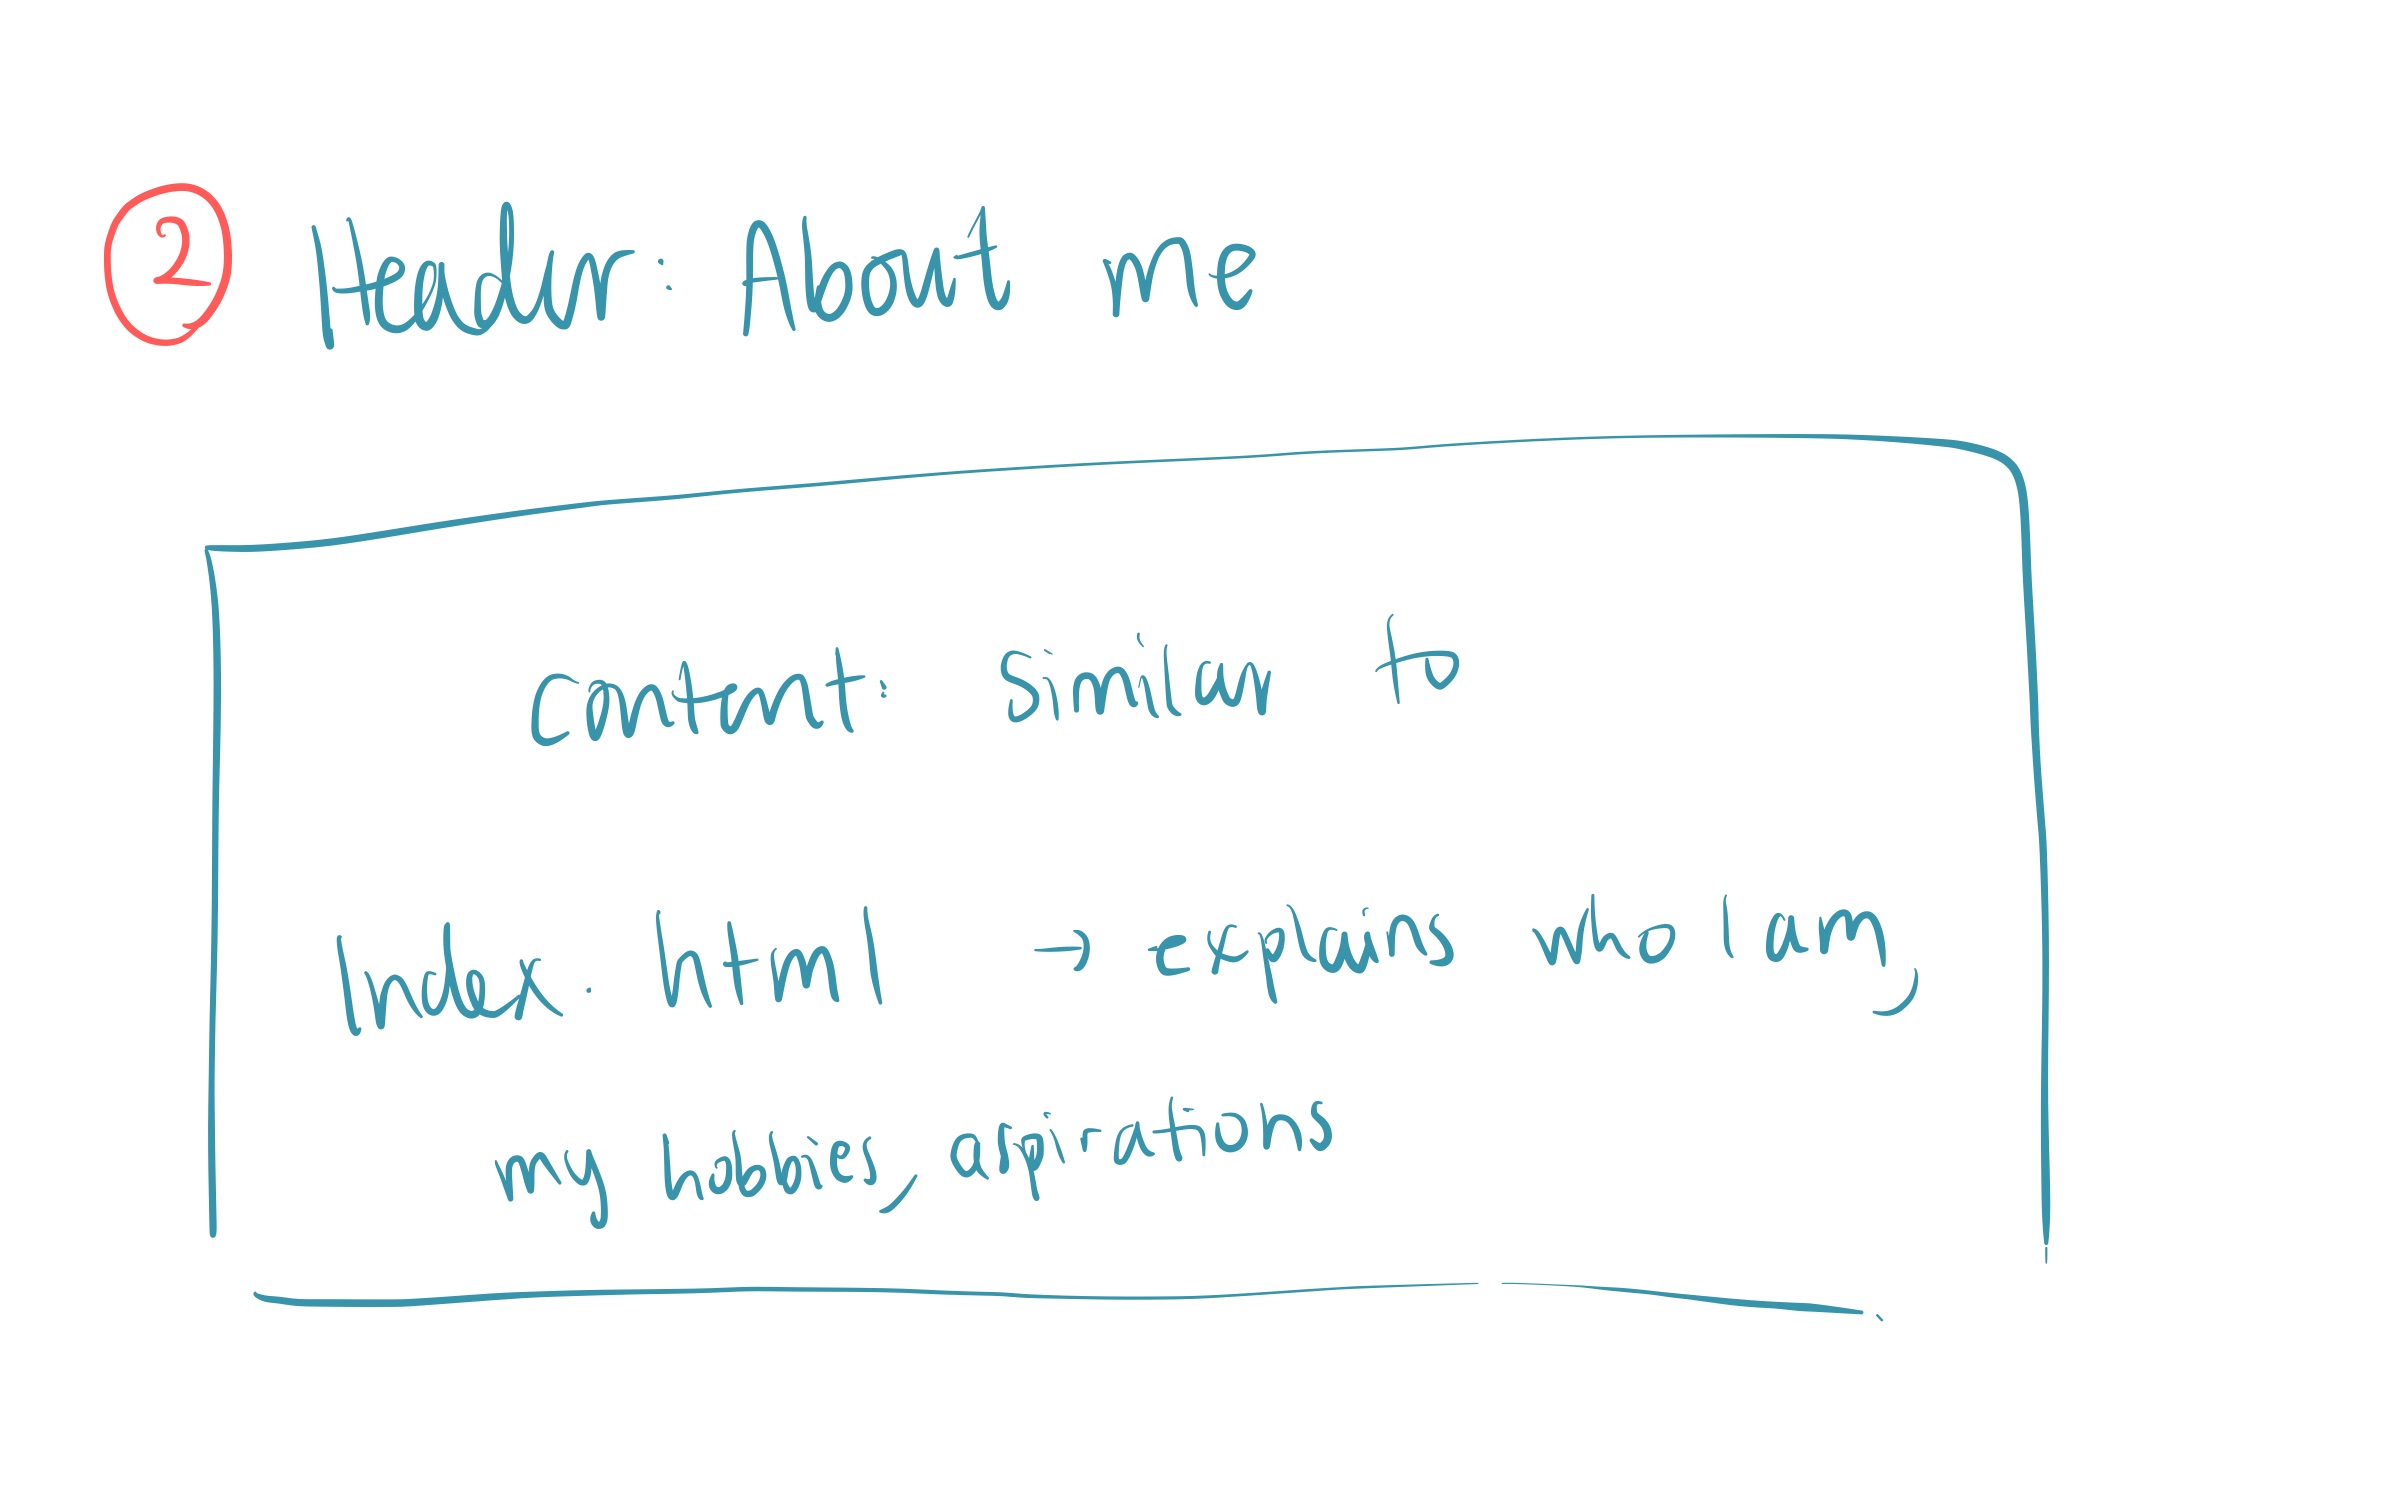 ② Header: About me
content: similar to
Index.html → explains who I am,
my hobbies, aspirations